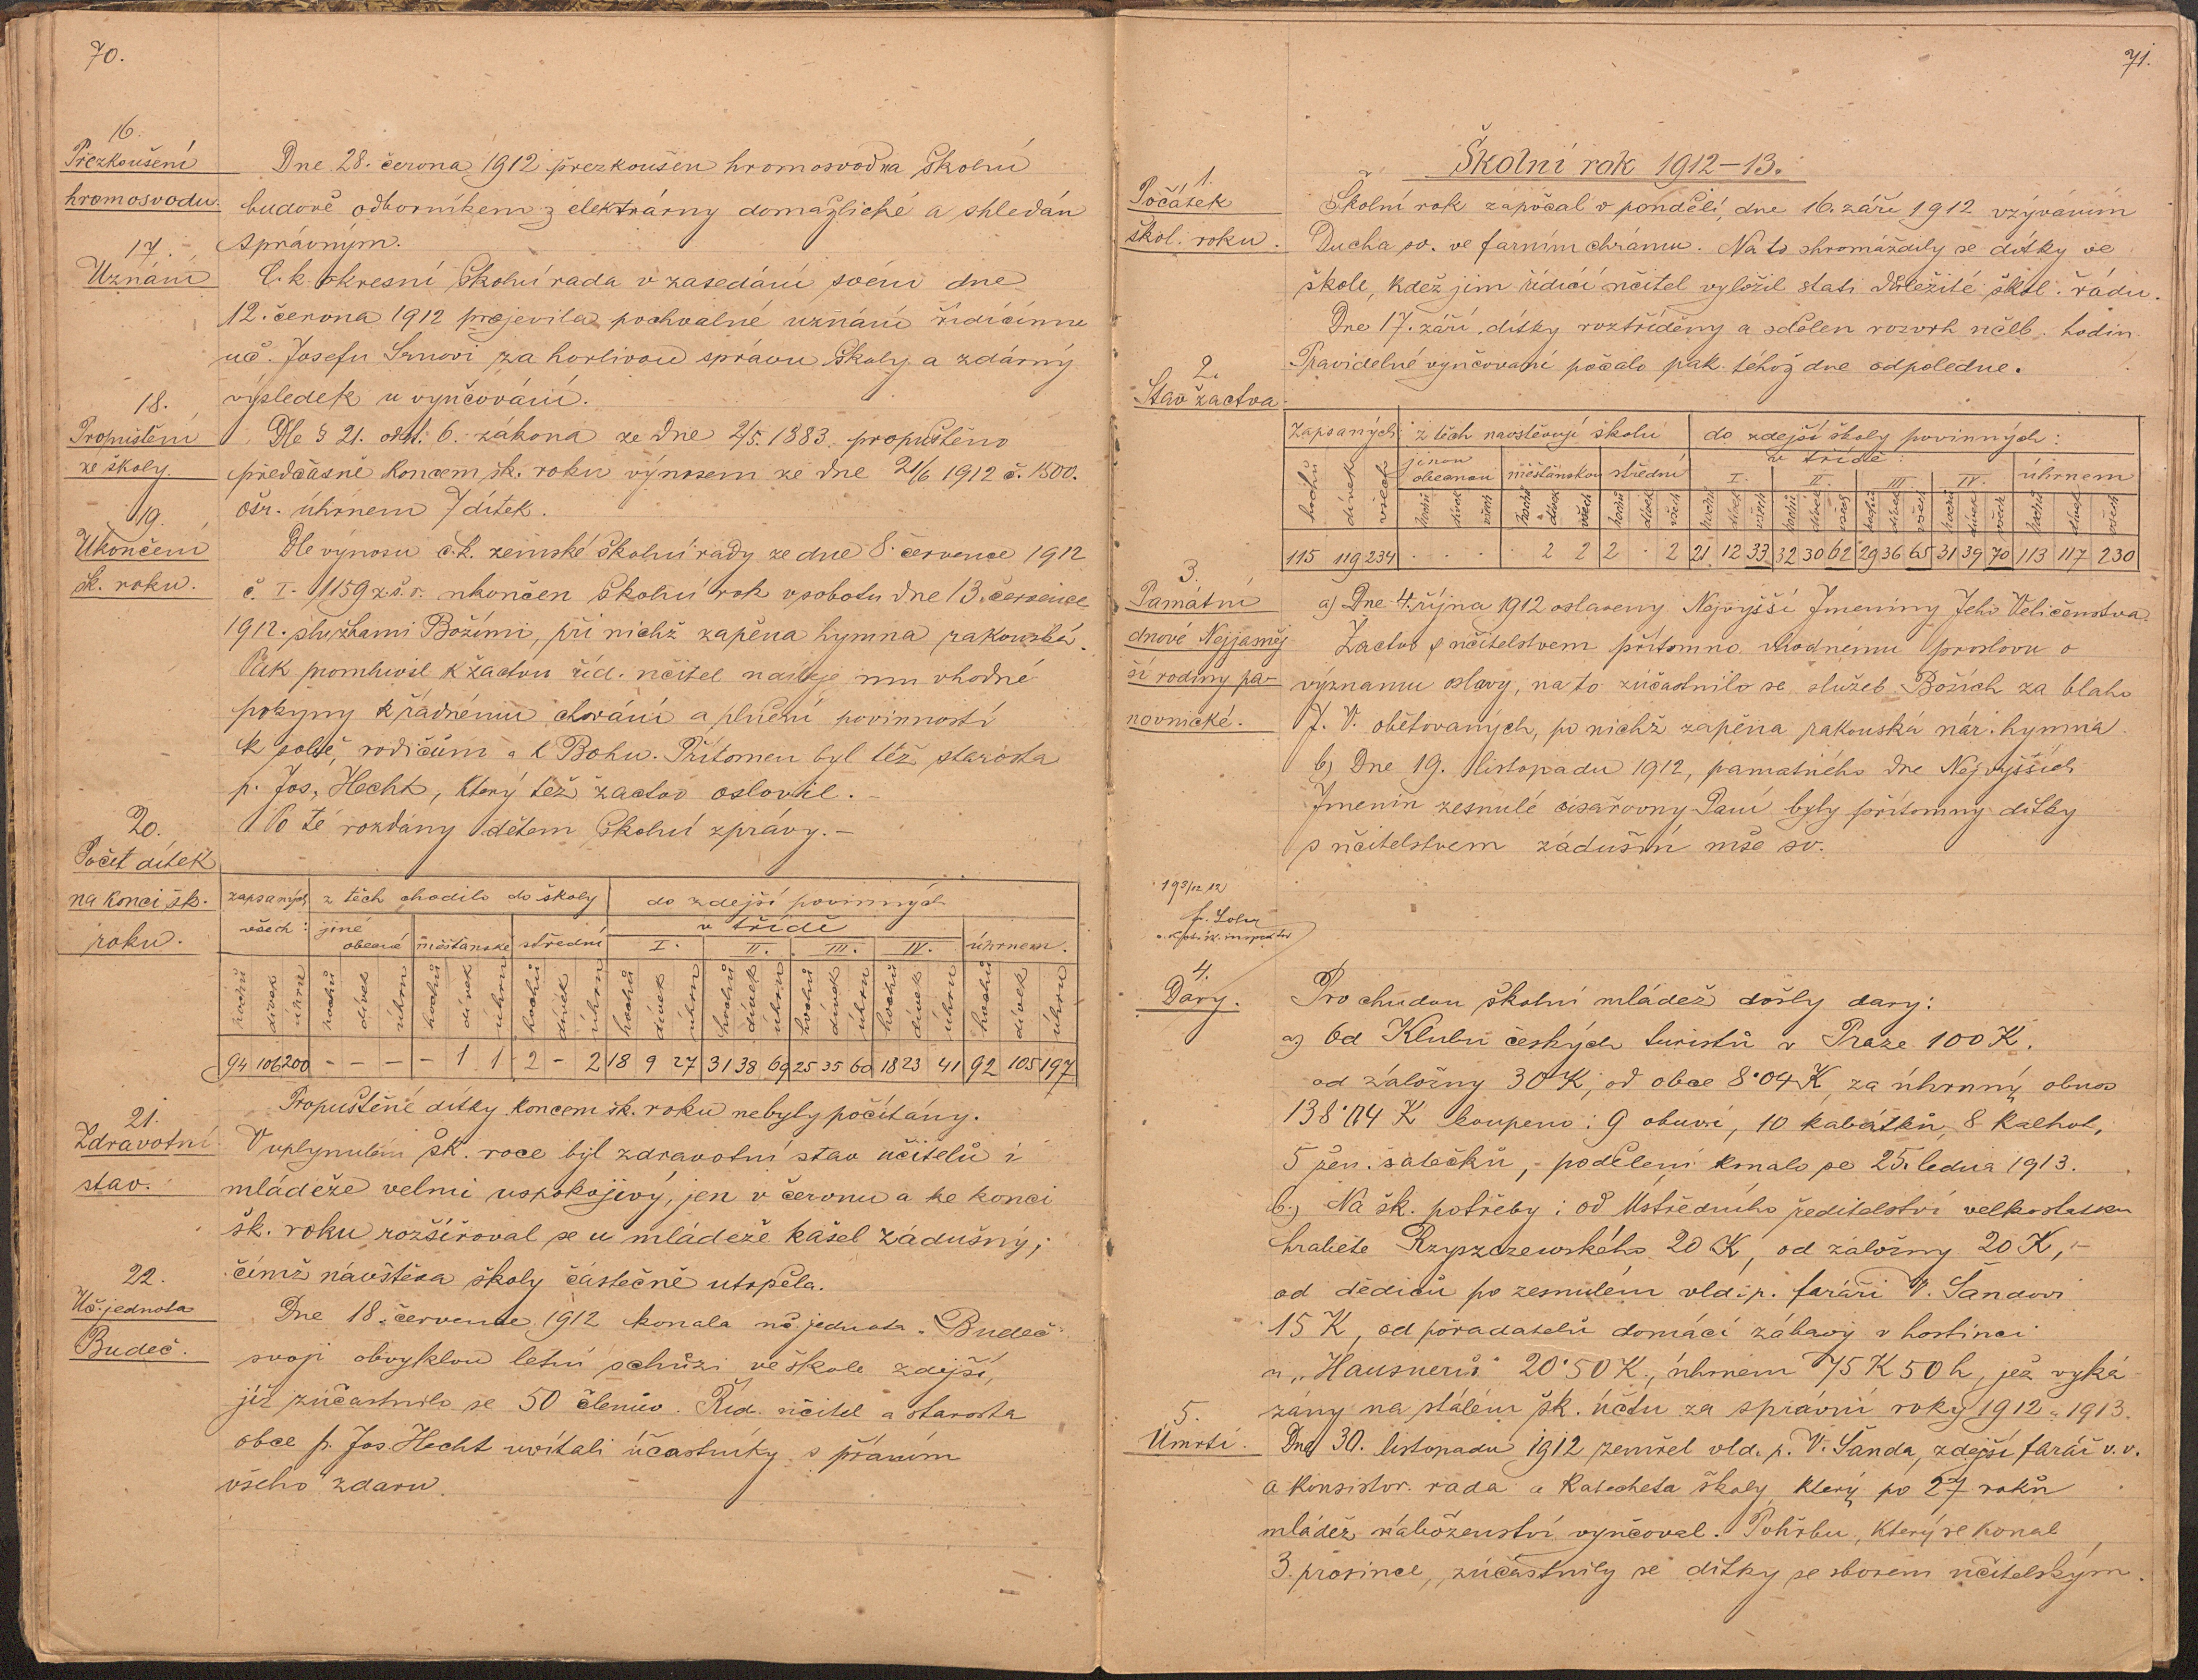 70.
16.
Přezkoušení
hromosvodu.
Dne 28. června 1912 přezkoušen hromosvod na školní
budově odborníkem z elektrárny domažlické a shledán
správným.
17.
Uznání
C. k. okresní školní rada v zasedání svém dne
12. června 1912 projevila pochvalné uznání řídícímu
uč. Josefu za horlivou správu školy a zdárný
výsledek u vyučování.
18.
Propuštění
ze školy.
Dle § 21. odst. 6. zákona ze dne 2/5. 1883 propuštěno
předčasně koncem šk. roku výnosem ze dne 21/6 1912 č. 1500.
ošr. úhrnem 7 dítek.
19.
Ukončení
šk. roku.
Dle výnosu c. k. zemské školní rady ze dne 8. července 1912
č. I- 1159 z. š. r. ukončen školní rok v sobotu dne 13. července
1912. službami Božími, při nichž zapěna hymna rakouská.
Pak promluvil k žactvu říd. učitel dávaje mu vhodné
pokyny k řádnému chování a plnění povinností
k sobě, rodičům a k Bohu. Přítomen byl též starosta
p. Jos. Hecht, který též žactvo oslovil. –
Po té rozdány dětem školní zprávy. –
20.
Počet dítek
na konci šk.
roku.
zapsaných z těch chodilo do školy do zdejší povinných
všech: jiné obecné měšťanské střední v třídě I. II. III. IV. úhrnem.
hochů dívek úhrn hochů dívek úhrn hochů dívek úhrn hochů dívek úhrn hochů dívek úhrn hochů dívek úhrn hochů dívek úhrn hochů dívek úhrn hochů dívek úhrn
94 106 200 – – – – 1 1 2 – 2 18 9 27 31 38 69 25 35 60 18 23 41 92 105 197
Propuštěné dítky koncem šk. roku nebyly počítány.
21.
Zdravotní
stav.
V uplynulém šk. roce byl zdravotní stav učitelů i
mládeže velmi uspokojivý, jen v červnu a ke konci
šk. roku rozšiřoval se u mládeže kašel zádušný,
čímž návštěva školy částečně utrpěla.
22.
Uč. jednota
Budeč.
Dne 18. července 1912 konala uč. jednota „Budeč"
svoji obvyklou letní schůzi ve škole zdejší,
jíž zúčastnilo se 50 členův. Říd. učitel a starosta
obce p. Jos. Hecht uvítali účastníky s přáním
všeho zdaru.
71.
Školní rok 1912–13.
1.
Počátek
škol. roku.
Školní rok započal v pondělí, dne 16. září 1912 vzýváním
Ducha sv. ve farním chrámu. Na to shromáždily se dítky ve
škole, kdež jim řídící učitel vyložil stati důležité škol. řádu.
Dne 17. září dítky roztříděny a sdělen rozvrh učeb. hodin.
Pravidelné vyučování počalo pak téhož dne odpoledne.
2.
Stav žactva
Zapsaných z těch navštěvují školu do zdejší školy povinných:
jinou obecnou měšťanskou střední v třídě: I. II. III. IV. úhrnem
hochů dívek všech hochů dívek všech hochů dívek všech hochů dívek všech hochů dívek všech hochů dívek všech hochů dívek všech hochů dívek všech hochů dívek všech
115 119 234 . . . . 2 2 2 . 2 21 12 33 32 30 62 29 36 65 31 39 70 113 117 230
3.
Památní
dnové Nejjasněj
ší rodiny pa-
novnické.
a) Dne 4. října 1912 oslaveny Nejvyšší Jmeniny Jeho Veličenstva.
Žactvo s učitelstvem přítomno vhodnému proslovu o
významu oslavy, na to zúčastnilo se služeb Božích za blaho
J. V. obětovaných, po nichž zapěna rakouská nár. hymna.
b) Dne 19. listopadu 1912, památného dne Nejvyšších
Jmenin zesnulé císařovny Paní byly přítomny dítky
s učitelstvem zádušní mše sv.
4.
Dary.
Pro chudou školní mládež došly dary:
a) Od Klubu českých turistů v Praze 100 K.
od záložny 30 K, od obce 8·04 K, za úhrnný obnos
138·04 K koupeno: 9 obuvi, 10 kabátků, 8 kalhot,
5 žen. šátečků, – podělení konalo se 25. ledna 1913.
b.) Na šk. potřeby: od Ústředního ředitelství velkostatku
hraběte Rzyszczewského 20 K, od záložny 20 K, –
od dědiců po zesnulém vld. p. faráři V. Šandovi
15 K, od pořadatelů domácí zábavy v hostinci
u „Hausnerů" 20·50 K., úhrnem 75 K 50 h, jež vyká-
zány na stálém šk. účtu za správní roky 1912 „ 1913.
5.
Úmrtí.
Dne 30. listopadu 1912 zemřel vld. p. V. Šanda, zdejší farář v. v.
a konsistor. rada a katecheta školy, který po 27 roků
mládež náboženství vyučoval. Pohřbu, který se konal
3. prosince, zúčastnily se dítky se sborem učitelským.